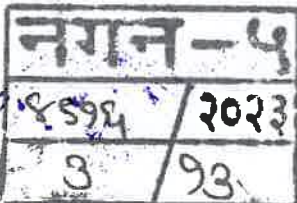 नगन-५
४५१६ / २०२३
३ / १३